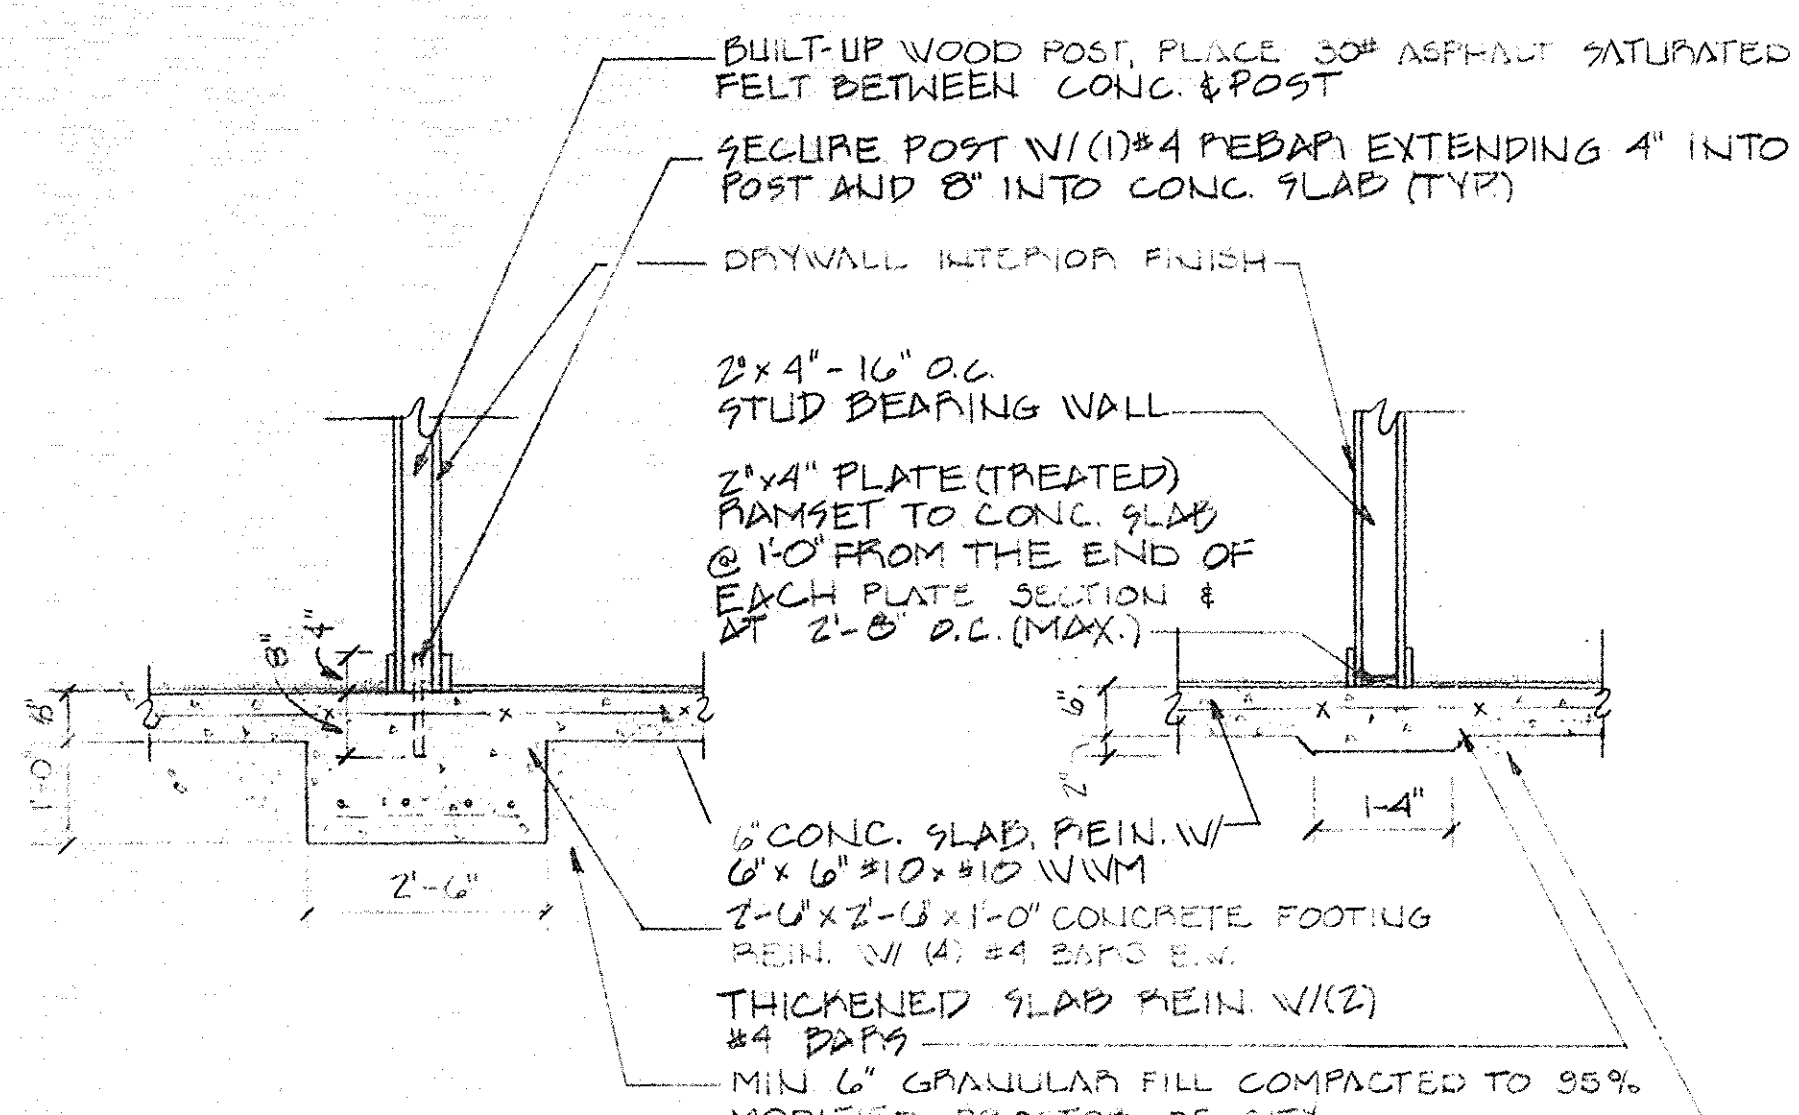 BUILT-UP WOOD POST, PLACE 30# ASPHALT SATURATED
FELT BETWEEN CONC. & POST
SECURE POST W/(1)#4 REBAR EXTENDING 4" INTO
POST AND 8" INTO CONC. SLAB (TYP.)
DRYWALL INTERIOR FINISH
2"x 4"- 16" O.C.
STUD BEARING WALL
2"x4" PLATE (TREATED)
RAMSET TO CONC. SLAB
@ 1'-0" FROM THE END OF
EACH PLATE SECTION &
AT 2'-8" O.C. (MAX.)
4"
8"
6"
1'-0
2'-6"
6"
2"
1-4"
6" CONC. SLAB, REIN. W/
6"x 6" #10x #10 WWM
2'-6"x 2'-6"x 1'-0" CONCRETE FOOTING
REIN. W/ (4) #4 BARS E.W.
THICKENED SLAB REIN. W/(2)
#4 BARS
MIN 6" GRANULAR FILL COMPACTED TO 95%
MODIFIED PROCTOR